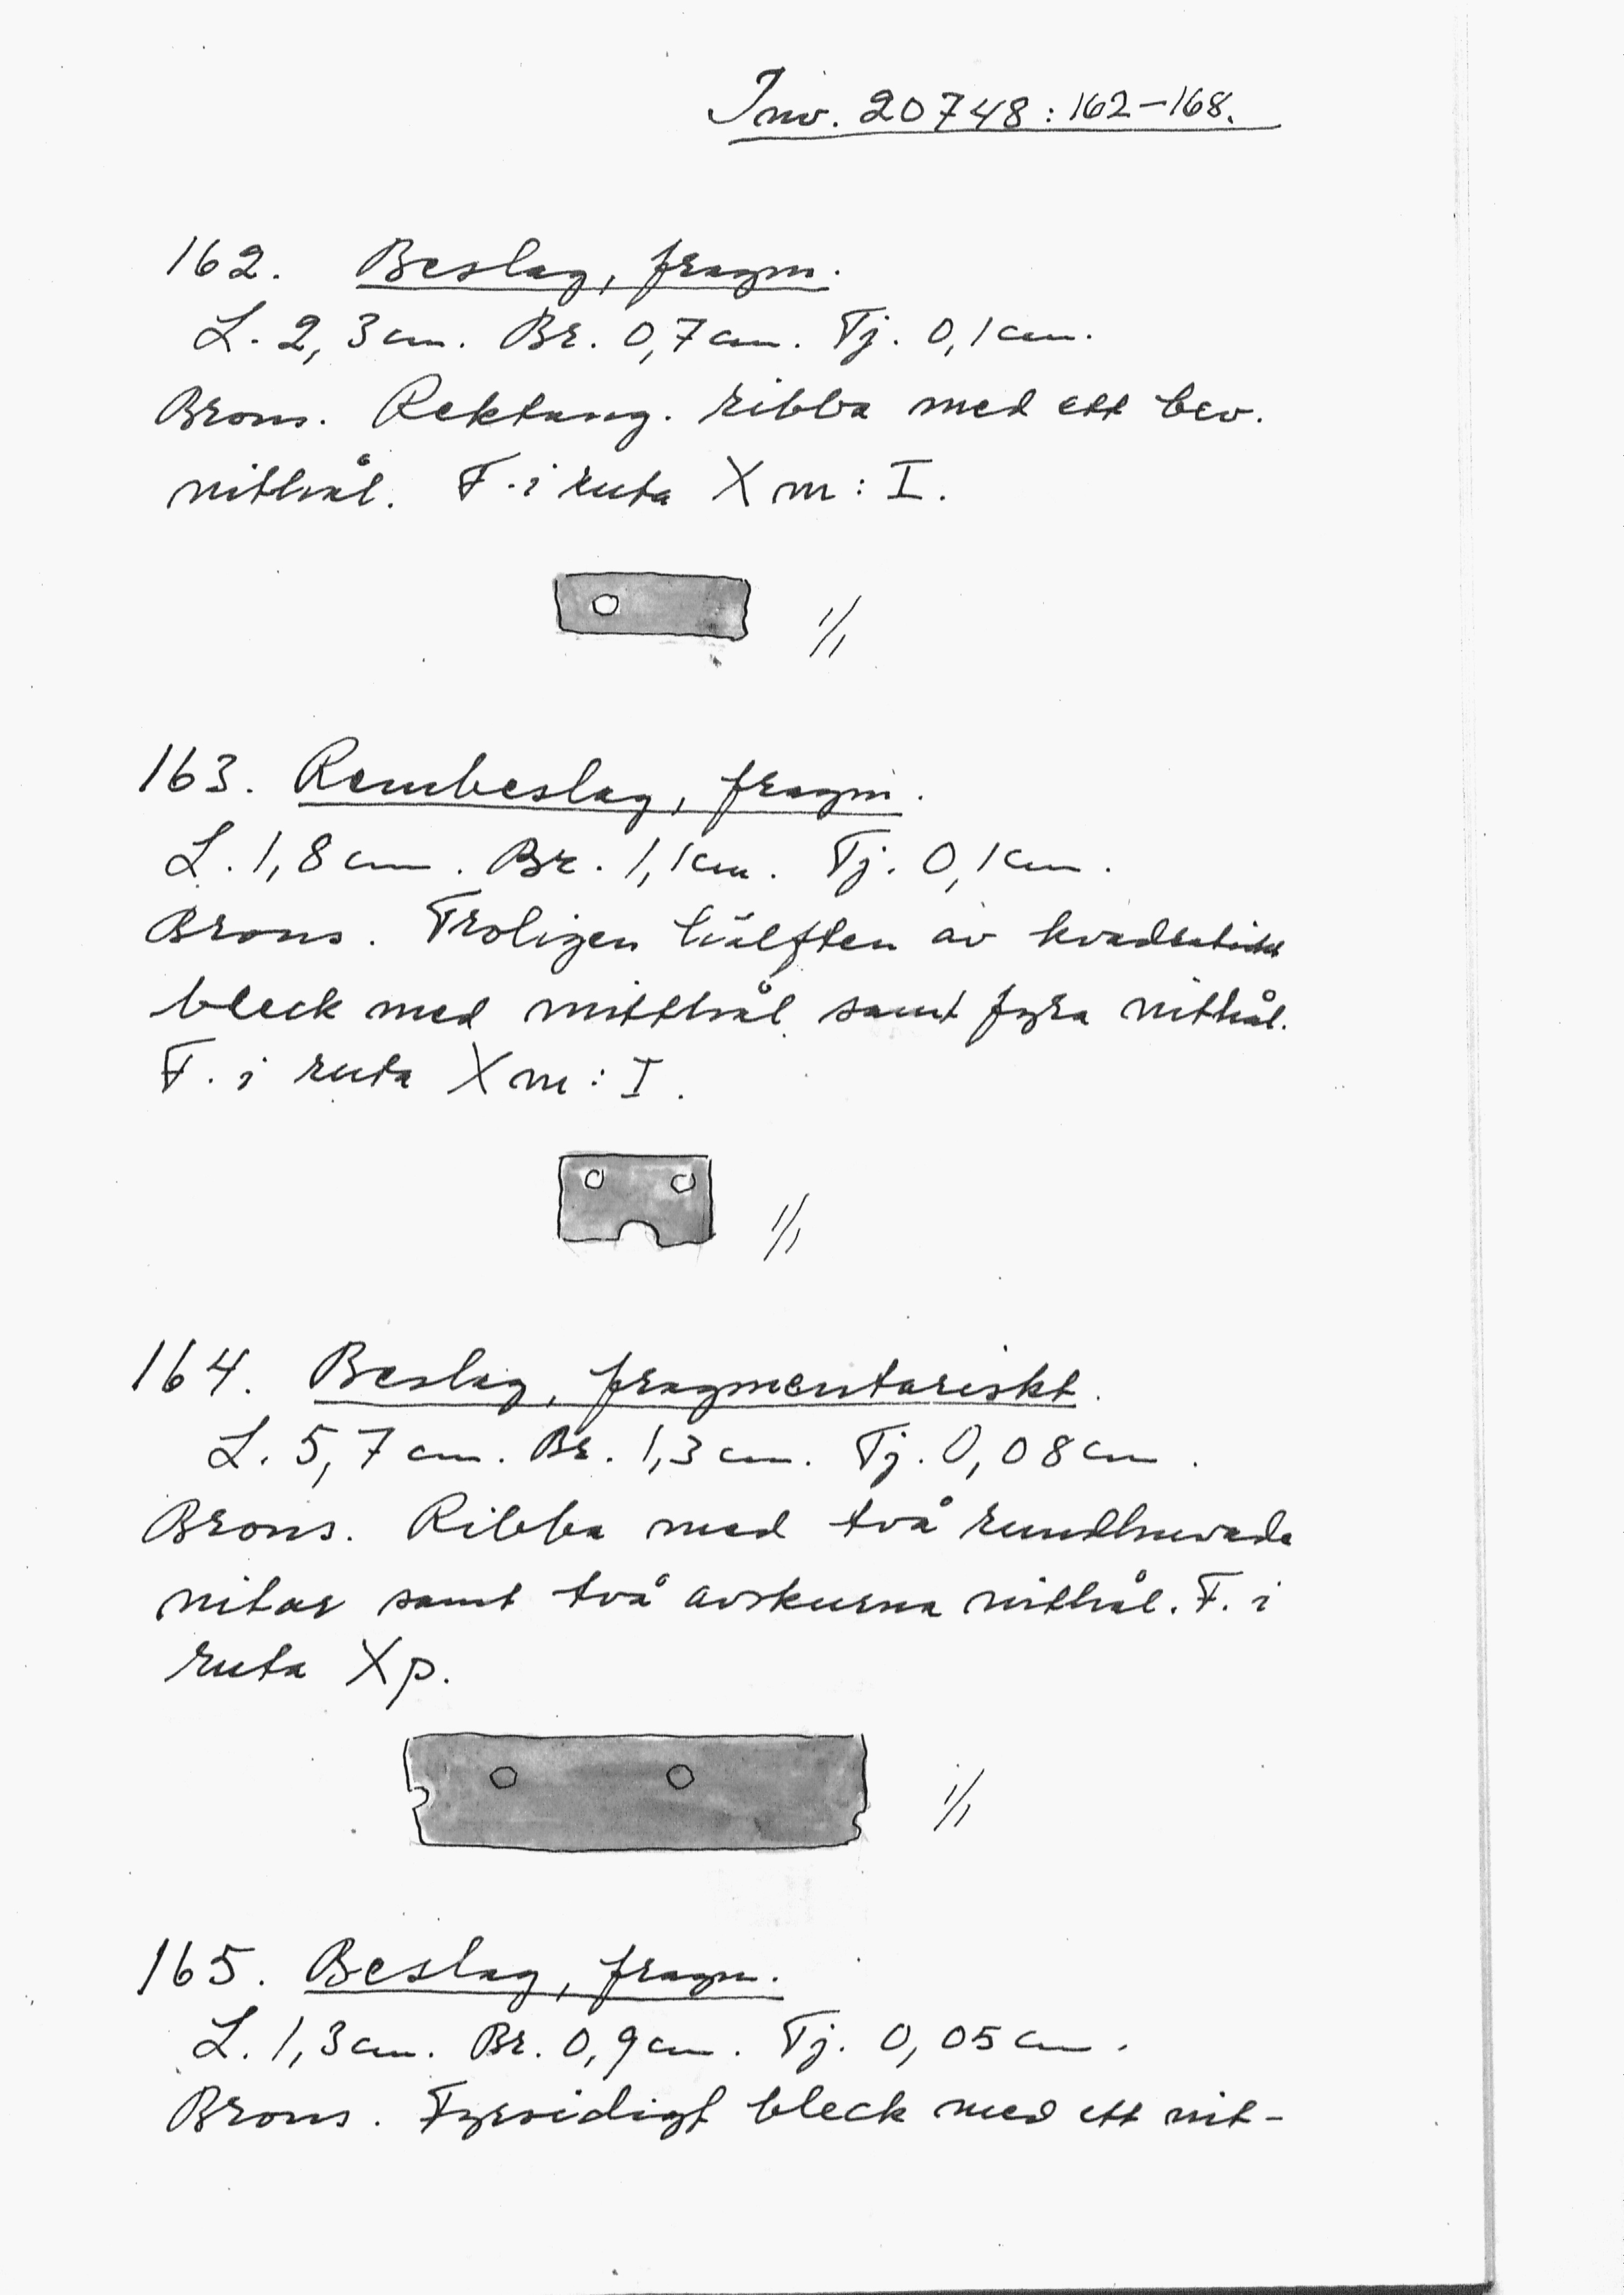 Inv. 20748:162-168.
162. Beslag, fragm.
L. 2,3 cm. Br. 0,7 cm. Tj. 0,1 cm.
Brons. Rektang. ribba med ett bev.
nithål. F. i ruta X m : I.
1/1
163. Rembeslag, fragm.
L. 1,8 cm. Br. 1,1 cm. Tj. 0,1 cm.
Brons. Troligen hälften av kvadratiskt
bleck med mitthål samt fyra nithål.
F. i ruta X m : I.
1/1
164. Beslag, fragmentariskt.
L. 5,7 cm. Br. 1,3 cm. Tj. 0,08 cm.
Brons. Ribba med två rundhuvade
nitar samt två avskurna nithål. F. i
ruta X p.
1/1
165. Beslag, fragm.
L. 1,3 cm. Br. 0,9 cm. Tj. 0,05 cm.
Brons. Fyrsidigt bleck med ett nit-